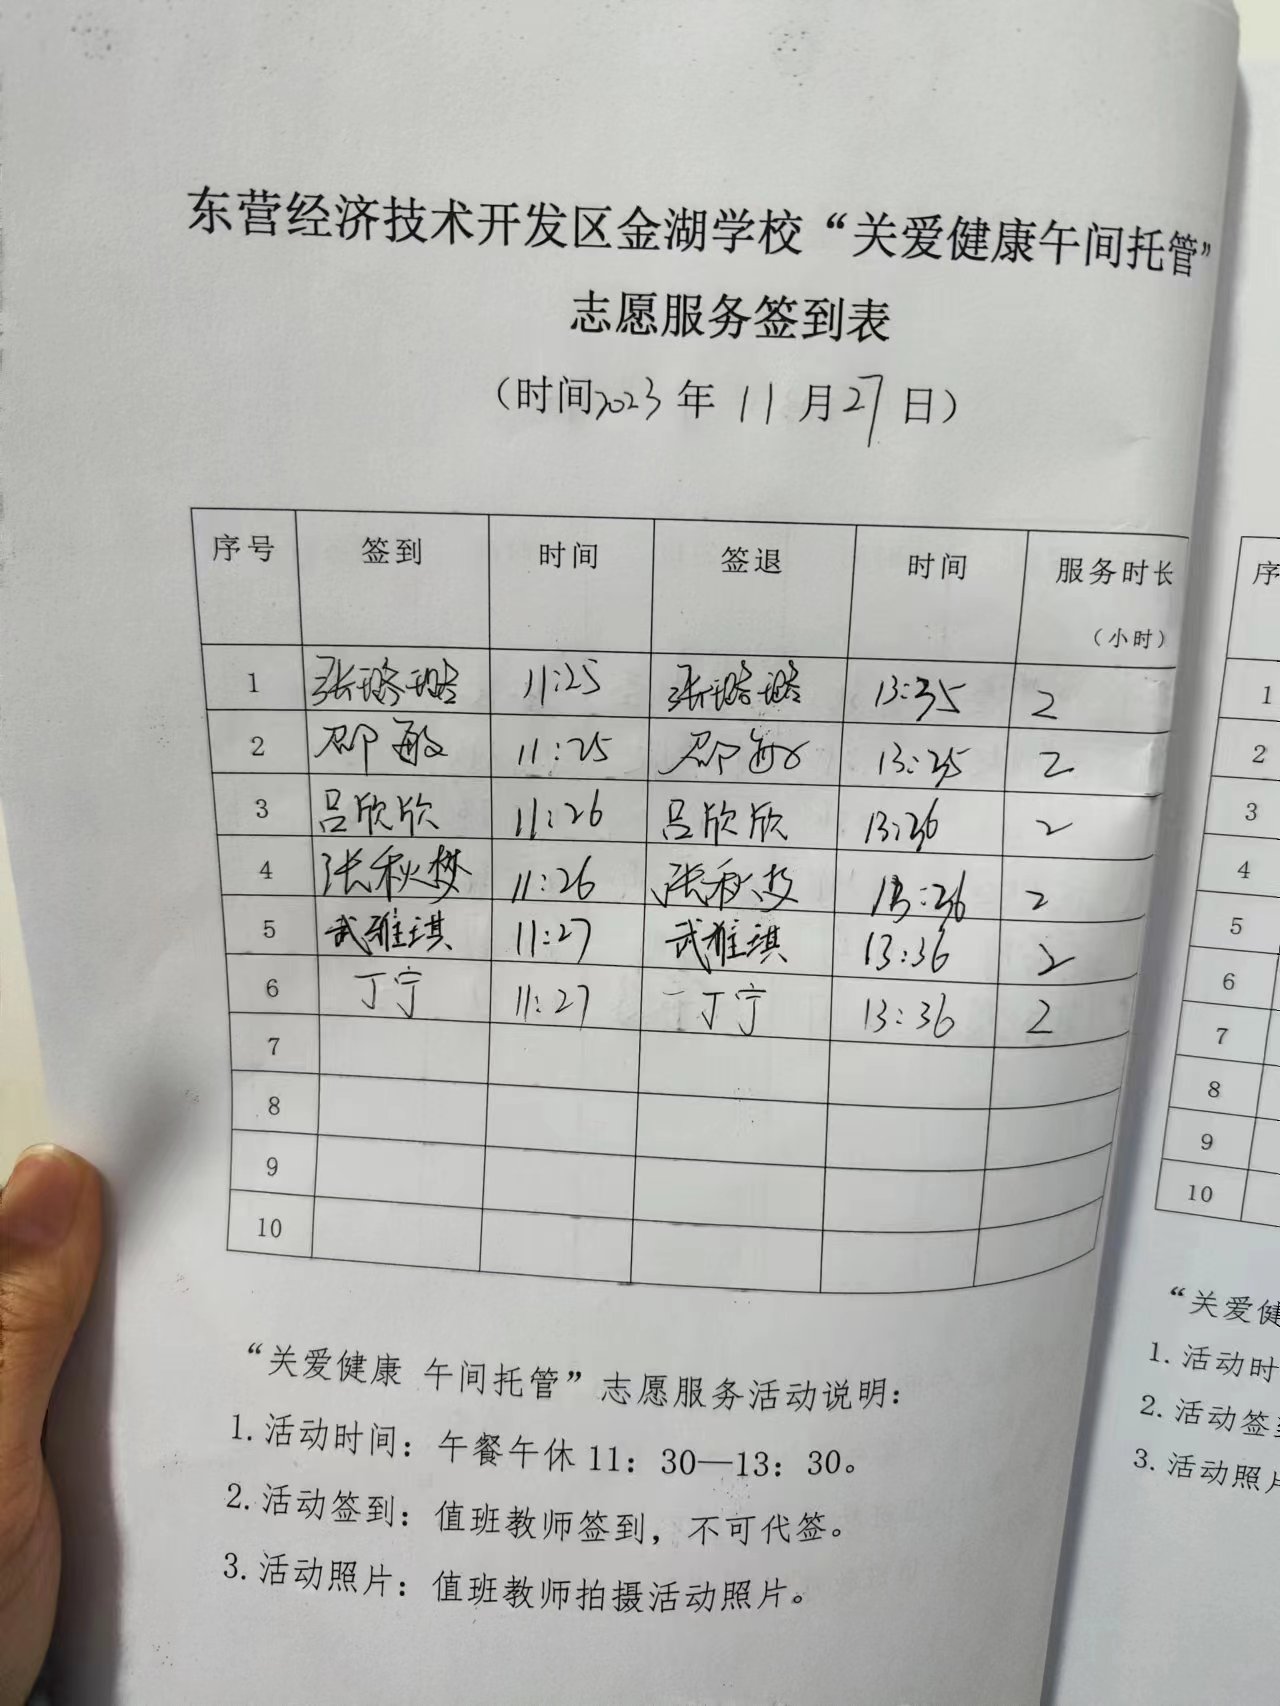 东营经济技术开发区金湖学校“关爱健康午间托管”
志愿服务签到表
（时间2023年11月27日）
序号 签到 时间 签退 时间 服务时长
（小时）
1 张璐璐 11:25 张璐璐 13:35 2
2 邵敏 11:25 邵敏 13:35 2
3 吕欣欣 11:26 吕欣欣 13:36 2
4 张秋梦 11:26 张秋梦 13:36 2
5 武雅琪 11:27 武雅琪 13:36 2
6 丁宁 11:27 丁宁 13:36 2
7
8
9
10
“关爱健康 午间托管”志愿服务活动说明：
1.活动时间：午餐午休11：30—13：30。
2.活动签到：值班教师签到，不可代签。
3.活动照片：值班教师拍摄活动照片。
序
1
2
3
4
5
6
7
8
9
10
“关爱健
1.活动时
2.活动签
3.活动照片